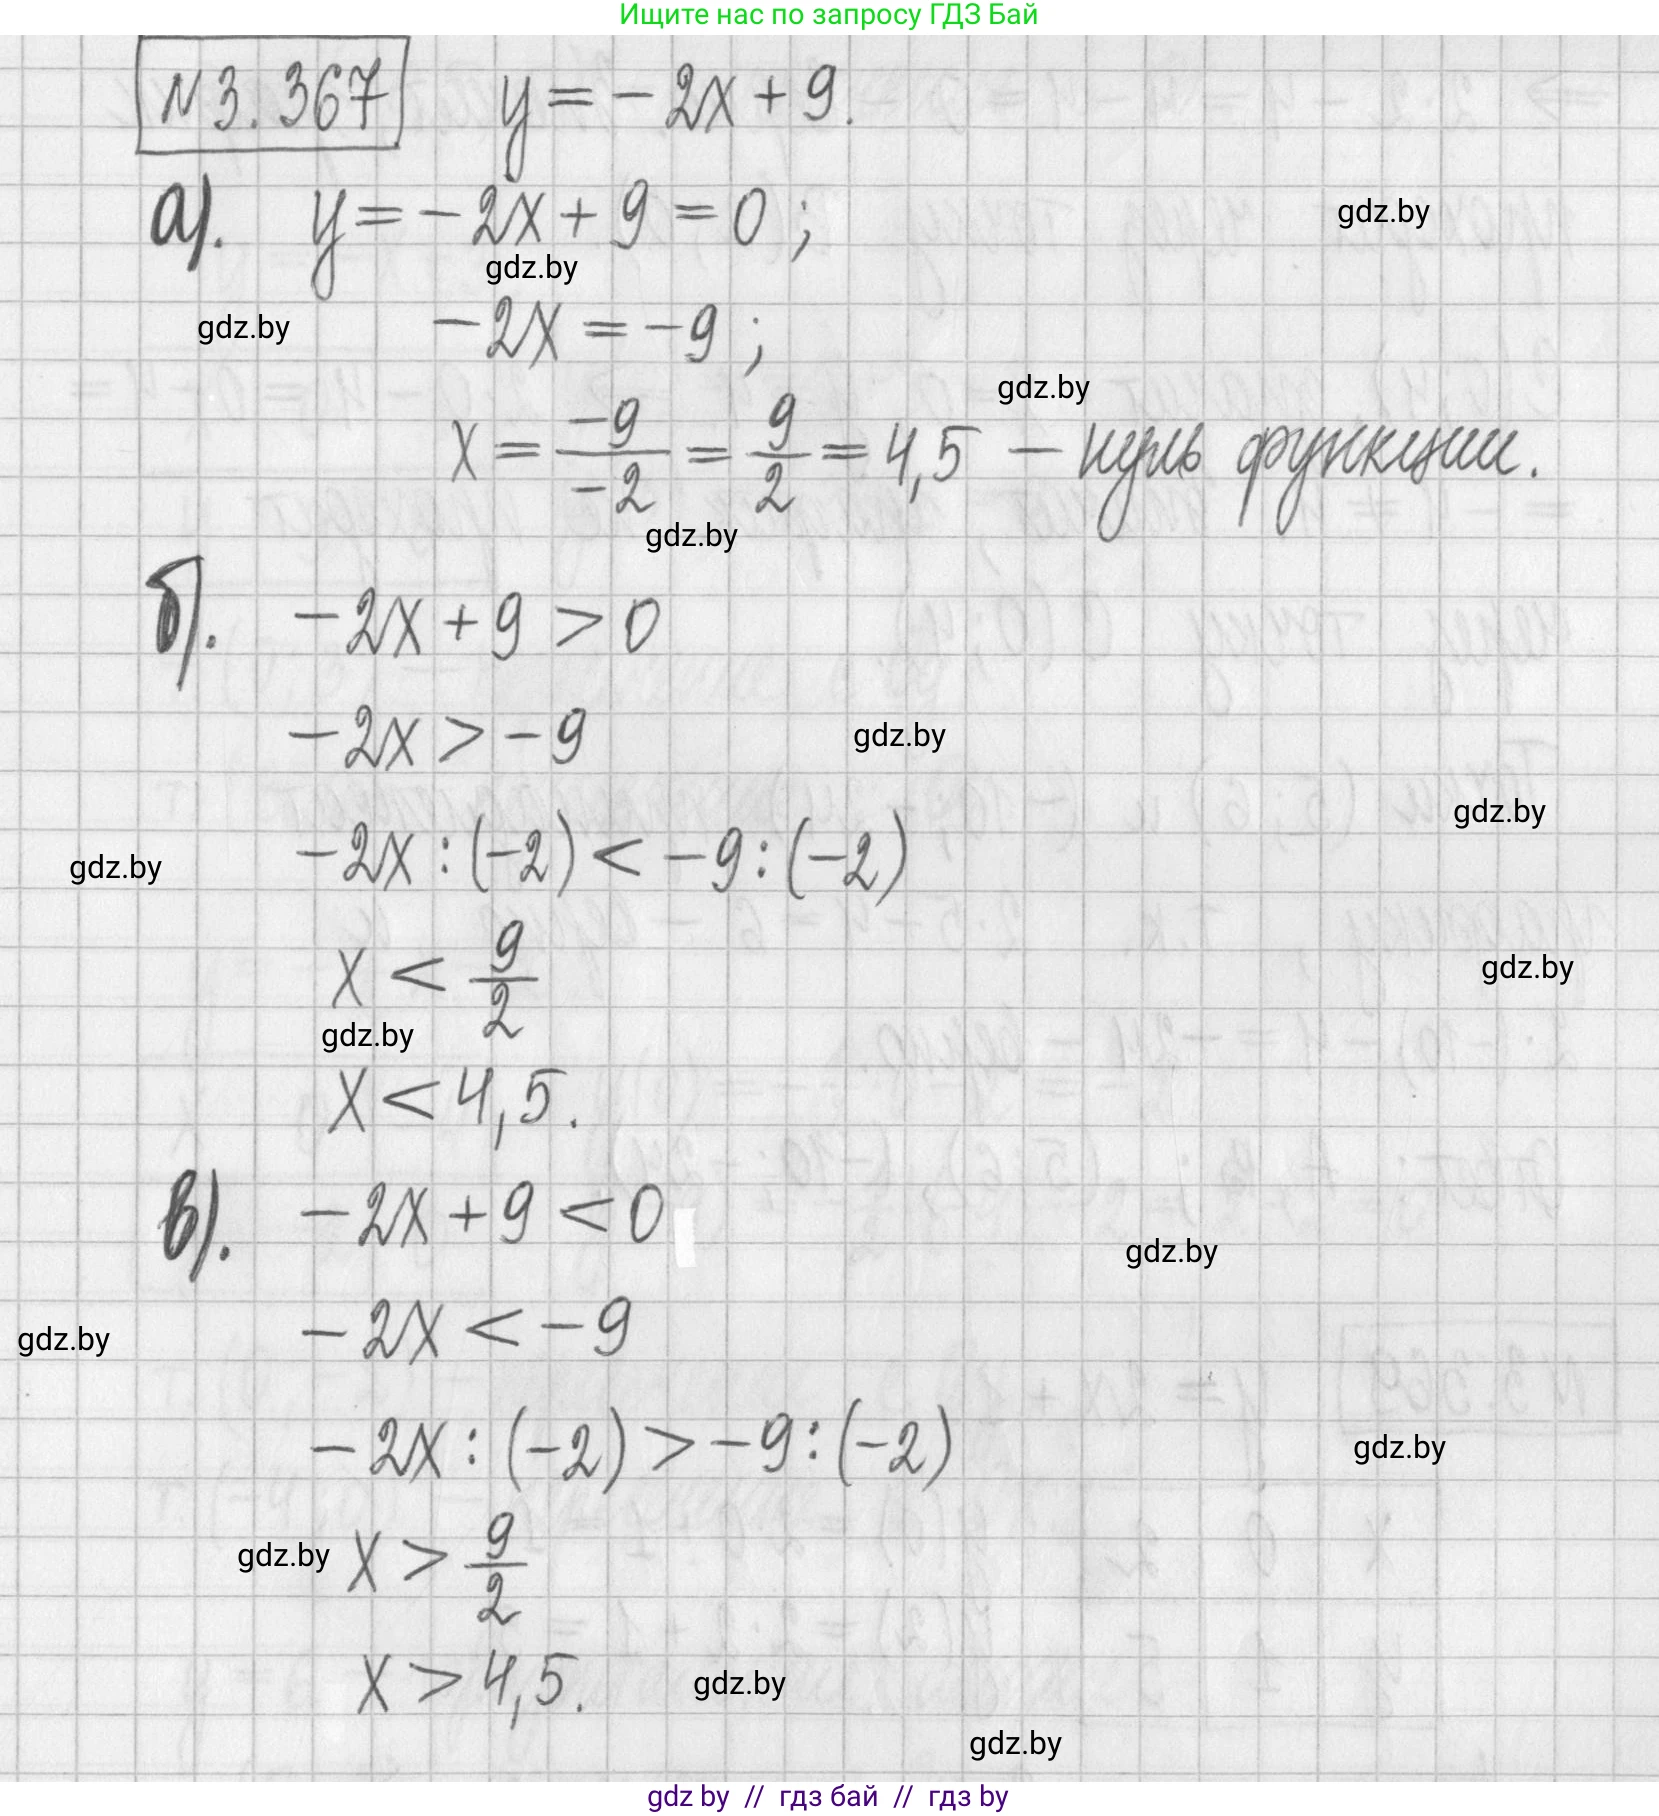 Ищите нас по запросу ГДЗ Бай
№3.367 y = -2x + 9.
а). y = -2x + 9 = 0 ;
gdz.by
gdz.by
gdz.by
-2x = -9 ;
gdz.by
x = -9/-2 = 9/2 = 4,5 - нуль функции.
gdz.by
б). -2x + 9 > 0
-2x > -9
gdz.by
gdz.by
-2x : (-2) < -9 : (-2)
gdz.by
x < 9/2
gdz.by
gdz.by
x < 4,5.
в). -2x + 9 < 0
gdz.by
-2x < -9
gdz.by
-2x : (-2) > -9 : (-2)
gdz.by
x > 9/2
gdz.by
x > 4,5.
gdz.by
gdz.by
gdz by // гдз бай // гдз by